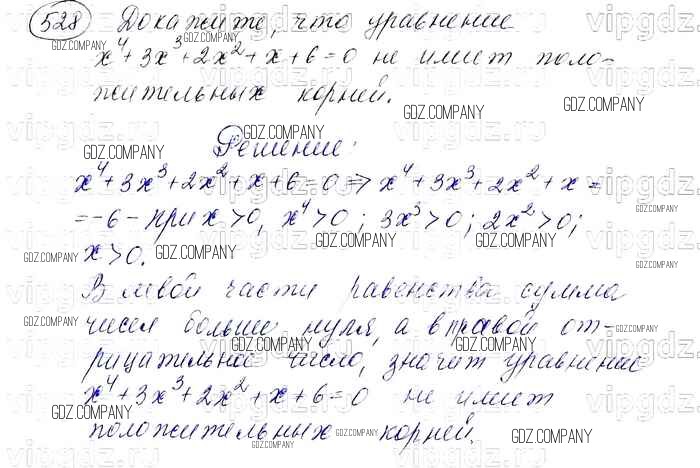 528 Докажите, что уравнение
x⁴+3x³+2x²+x+6=0 не имеет поло-
жительных корней.
Решение:
x⁴+3x³+2x²+x+6=0 => x⁴+3x³+2x²+x=
=-6 - при x>0, x⁴>0; 3x³>0; 2x²>0;
x>0.
В левой части равенства сумма
чисел больше нуля, а в правой от-
рицательное число, значит уравнение
x⁴+3x³+2x²+x+6=0 не имеет
положительных корней.